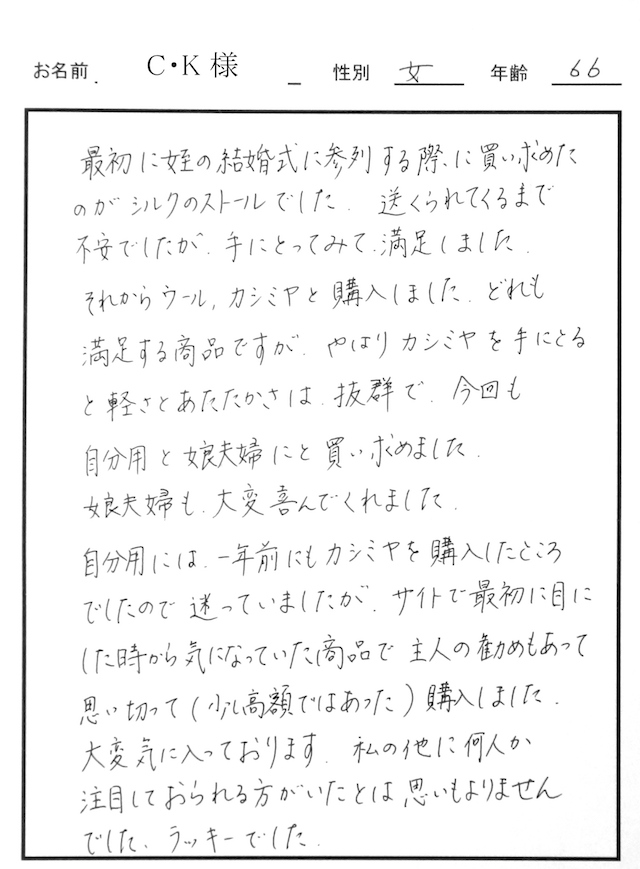 お名前 C・K 様 性別 女 年齢 66
最初に姪の結婚式に参列する際に買い求めた
のがシルクのストールでした. 送くられてくるまで
不安でしたが.手にとってみて.満足しました.
それからウール,カシミヤと購入しました.どれも
満足する商品ですが.やはりカシミヤを手にとる
と軽さとあたたかさは.抜群で.今回も
自分用と娘夫婦にと買い求めました.
娘夫婦も.大変喜んでくれました.
自分用には.一年前にもカシミヤを購入したところ
でしたので迷っていましたが.サイトで最初に目に
した時から気になっていた商品で主人の勧めもあって
思い切って(少し高額ではあった)購入しました.
大変気に入っております.私の他に何人か
注目しておられる方がいたとは思いもよりません
でした、ラッキーでした.